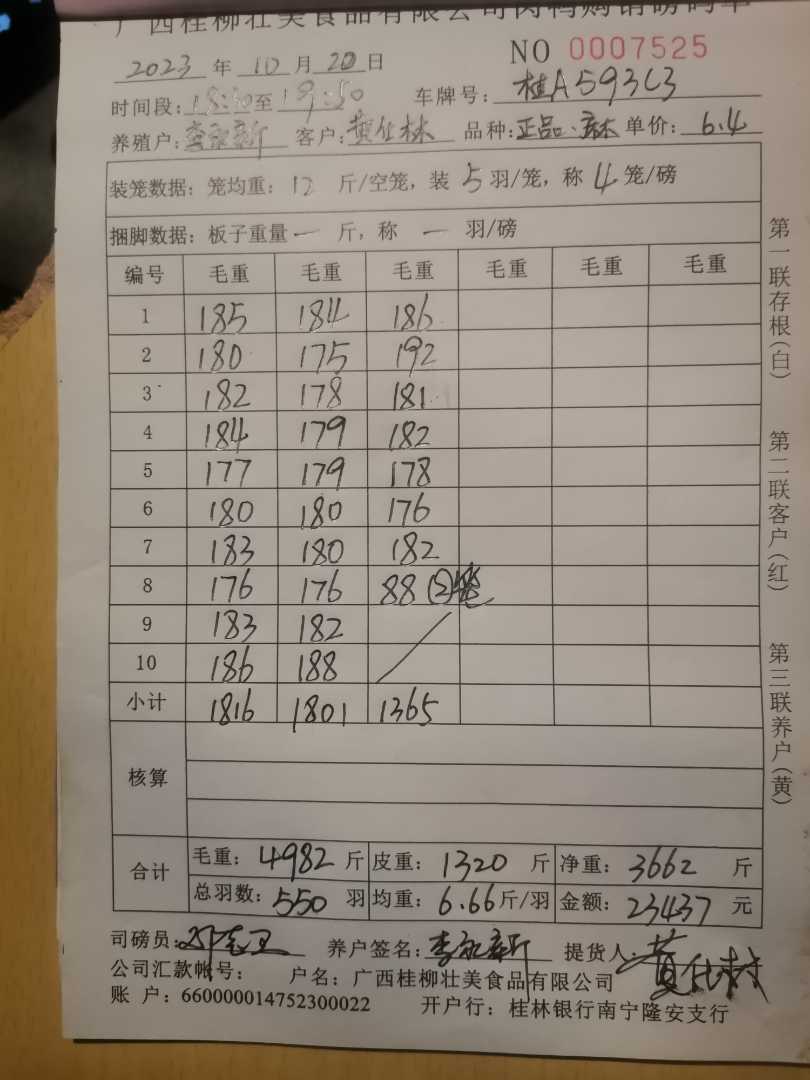 广西桂柳壮美食品有限公司肉鸭购销磅码单
2023 年 10 月 20 日 NO 0007525
时间段: 18:30 至 19:50 车牌号: 桂A593C3
养殖户: 李永新 客户: 黄仕林 品种: 正品. 单价: 6.4
装笼数据: 笼均重: 12 斤/空笼, 装 5 羽/笼, 称 4 笼/磅
捆脚数据: 板子重量 一 斤, 称 一 羽/磅
编号 毛重 毛重 毛重 毛重 毛重 毛重
1 185 184 186
2 180 175 192
3 182 178 181
4 184 179 182
5 177 179 178
6 180 180 176
7 183 180 182
8 176 176 88 ②笼
9 183 182
10 186 188
小计 1816 1801 1365
核算
合计 毛重: 4982 斤 皮重: 1320 斤 净重: 3662 斤
总羽数: 550 羽 均重: 6.66 斤/羽 金额: 23437 元
司磅员: 养户签名: 李永新 提货人: 黄仕林
公司汇款帐号: 户名: 广西桂柳壮美食品有限公司
账 户: 660000014752300022 开户行: 桂林银行南宁隆安支行
第一联存根(白) 第二联客户(红) 第三联养户(黄)